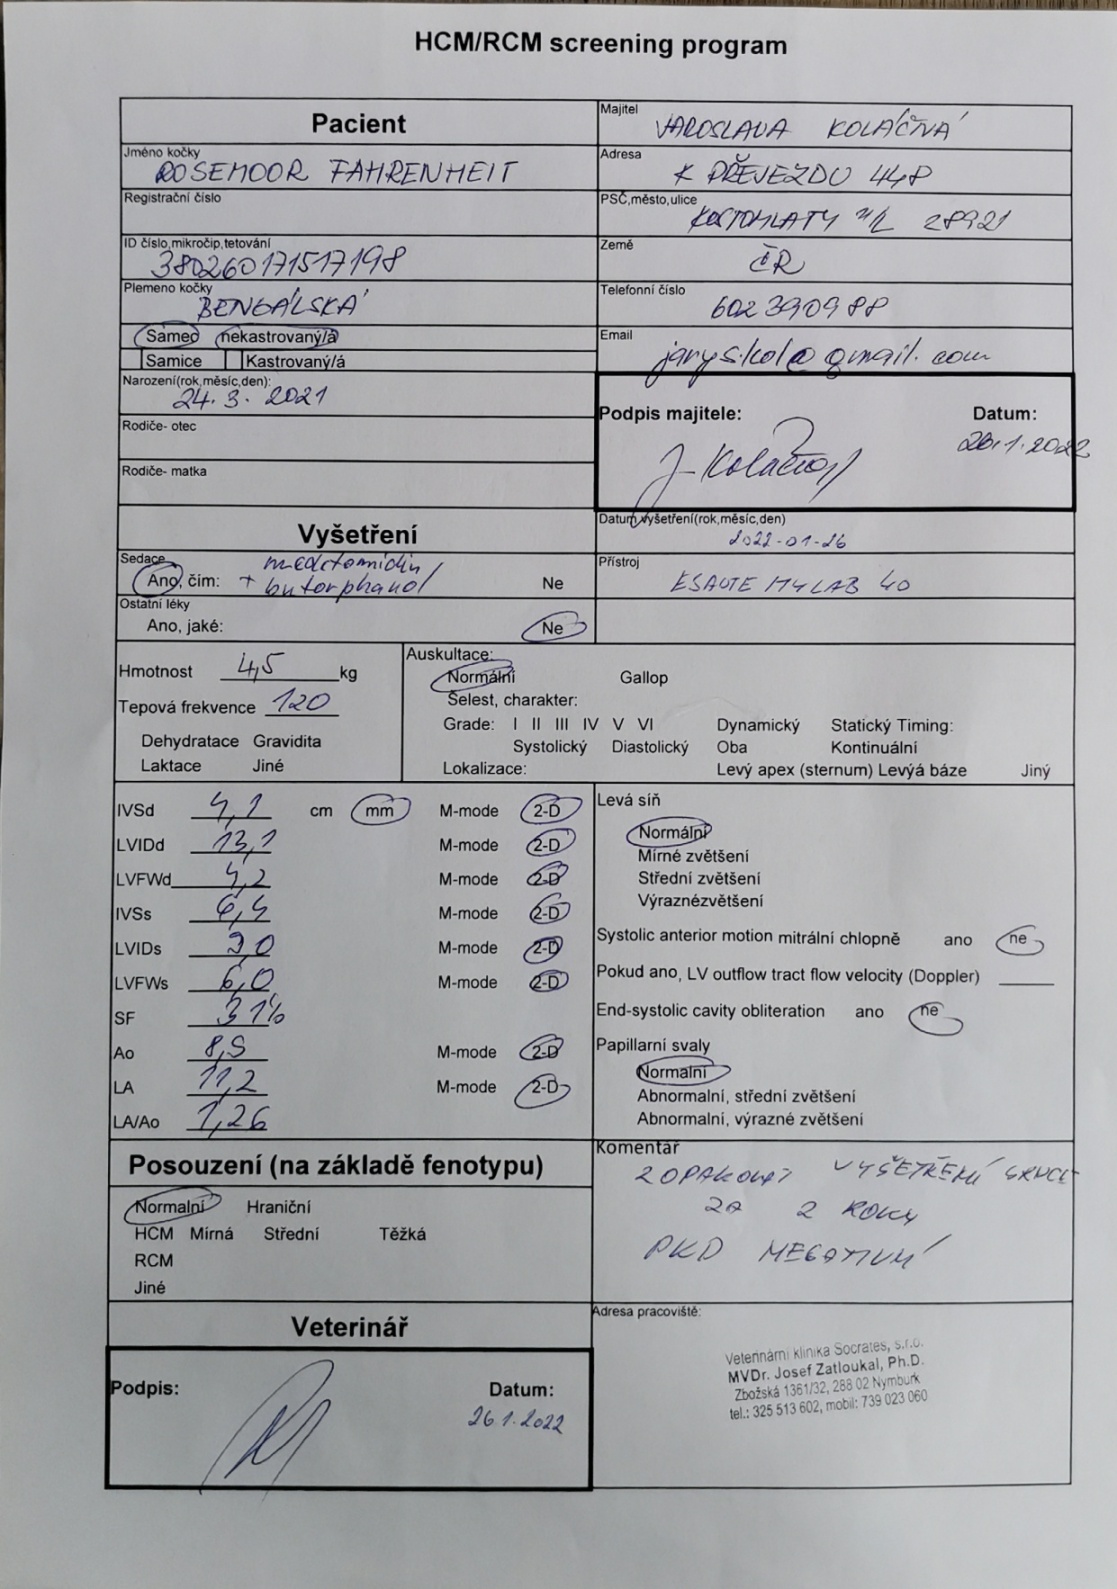 HCM/RCM screening program
Pacient
Majitel
JAROSLAVA KOLÁČNÁ
Jméno kočky
ROSEMOOR FAHRENHEIT
Adresa
K PŘEJEZDU 448
Registrační číslo
PSČ,město,ulice
KOSTOMLATY n/L 28921
ID číslo,mikročip,tetování
380260171517198
Země
ČR
Plemeno kočky
BENGÁLSKÁ
Telefonní číslo
602390988
Samec nekastrovaný/á
Samice Kastrovaný/á
Email
jarys.kol@gmail.com
Narození(rok,měsíc,den):
24. 3. 2021
Rodiče- otec
Rodiče- matka
Podpis majitele: Datum:
26.1.2022
Vyšetření
Datum vyšetření(rok,měsíc,den)
2022-01-26
Sedace
Ano, čím: medetomidin
+ butorphanol Ne
Přístroj
ESAOTE MYLAB 40
Ostatní léky
Ano, jaké: Ne
Hmotnost 4,5 kg
Tepová frekvence 120
Dehydratace Gravidita
Laktace Jiné
Auskultace:
Normální Gallop
Šelest, charakter:
Grade: I II III IV V VI Dynamický Statický Timing:
Systolický Diastolický Oba Kontinuální
Lokalizace: Levý apex (sternum) Levýá báze Jiný
IVSd 4,1 cm mm M-mode 2-D
LVIDd 13,1 M-mode 2-D
LVFWd 4,2 M-mode 2-D
IVSs 6,4 M-mode 2-D
LVIDs 9,0 M-mode 2-D
LVFWs 6,0 M-mode 2-D
SF 31%
Ao 8,9 M-mode 2-D
LA 11,2 M-mode 2-D
LA/Ao 1,26
Levá síň
Normální
Mírné zvětšení
Střední zvětšení
Výraznézvětšení
Systolic anterior motion mitrální chlopně ano ne
Pokud ano, LV outflow tract flow velocity (Doppler)
End-systolic cavity obliteration ano ne
Papillarní svaly
Normalní
Abnormalní, střední zvětšení
Abnormalní, výrazné zvětšení
Posouzení (na základě fenotypu)
Normalní Hraniční
HCM Mírná Střední Těžká
RCM
Jiné
Komentář
ZOPAKOVAT VYŠETŘENÍ SRDCE
ZA 2 ROKY
PKD NEGATIVNÍ
Veterinář
Podpis: Datum:
26.1.2022
Adresa pracoviště:
Veterinární klinika Socrates, s.r.o.
MVDr. Josef Zatloukal, Ph.D.
Zbožská 1361/32, 288 02 Nymburk
tel.: 325 513 602, mobil: 739 023 060